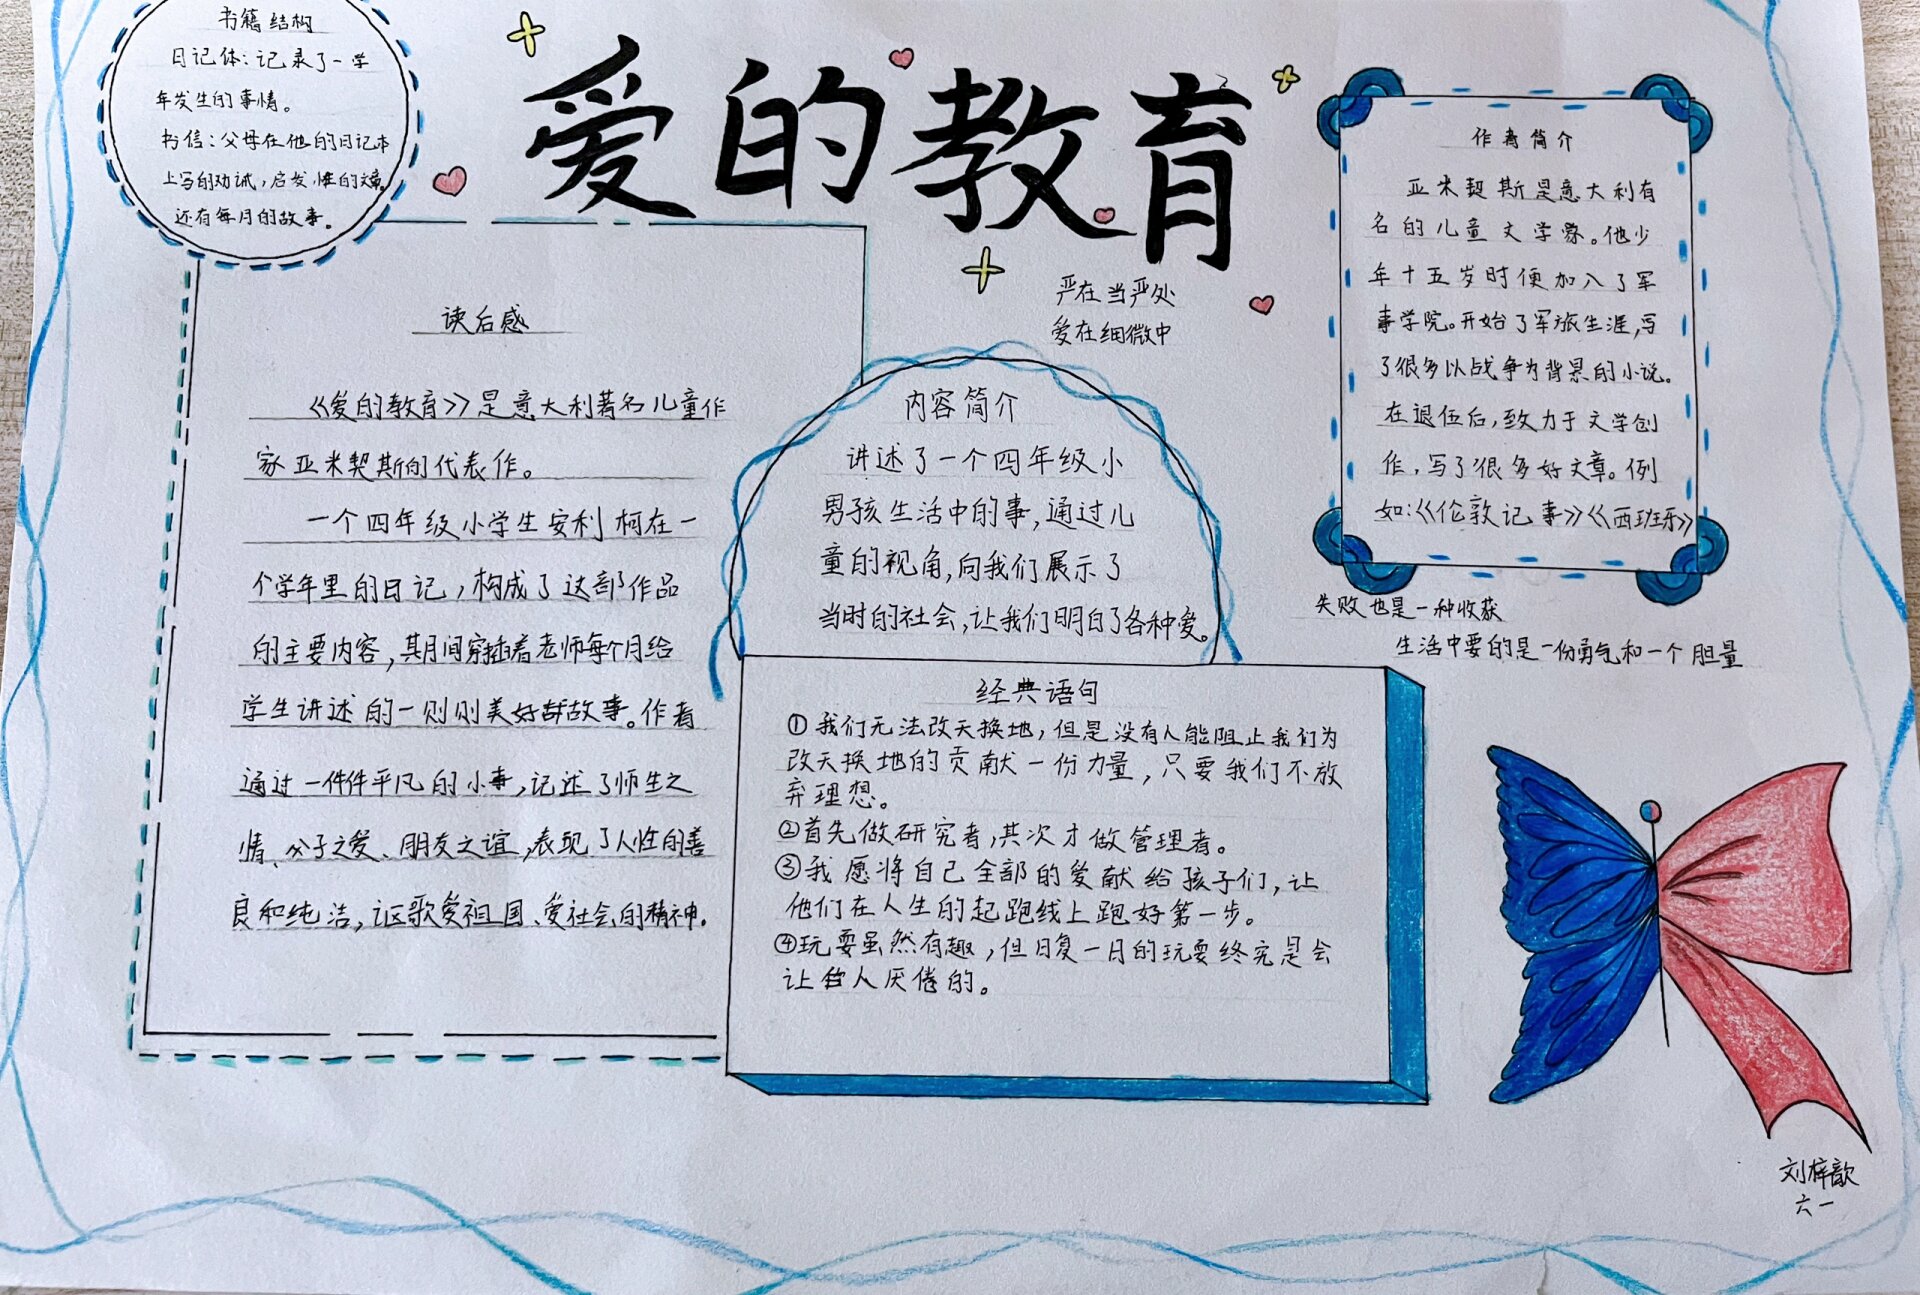 书籍结构
日记体:记录了一学
年发生的事情。
书信:父母在他的日记本
上写的劝诫,启发性的文章。
还有每月的故事。
爱的教育
严在当严处
爱在细微中
作者简介
亚米契斯是意大利有
名的儿童文学家。他少
年十五岁时便加入了军
事学院。开始了军旅生涯,写
了很多以战争为背景的小说。
在退伍后,致力于文学创
作,写了很多好文章。例
如:《伦敦记事》《西班牙》
失败也是一种收获
生活中要的是一份勇气和一个胆量
读后感
《爱的教育》是意大利著名儿童作
家亚米契斯的代表作。
一个四年级小学生安利柯在一
个学年里的日记,构成了这部作品
的主要内容,其月间穿插着老师每个月给
学生讲述的一则则美好故事。作者
通过一件件平凡的小事,记述了师生之
情、父子之爱、朋友之谊,表现了人性的善
良和纯洁,讴歌爱祖国、爱社会的精神。
内容简介
讲述了一个四年级小
男孩生活中的事,通过儿
童的视角,向我们展示了
当时的社会,让我们明白了各种爱。
经典语句
①我们无法改天换地,但是没有人能阻止我们为
改天换地的贡献一份力量,只要我们不放
弃理想。
②首先做研究者,其次才做管理者。
③我愿将自己全部的爱献给孩子们,让
他们在人生的起跑线上跑好第一步。
④玩耍虽然有趣,但日复一日的玩耍终究是会
让人厌倦的。
刘梓歆
六一